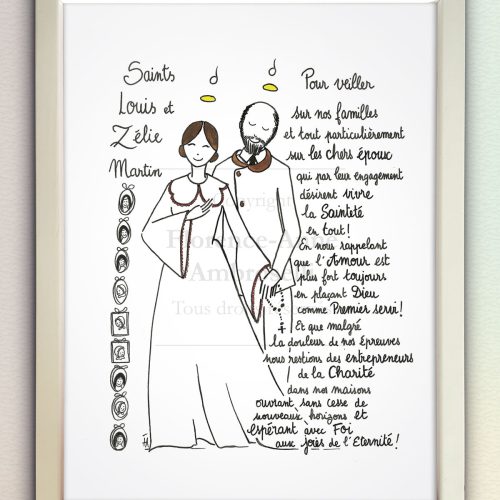 Saints
Louis et
Zélie
Martin
Pour veiller
sur nos familles
et tout particulièrement
sur les chers époux
qui par leur engagement
désirent vivre
la Sainteté
en tout !
En nous rappelant
que l'Amour est
plus fort toujours
en plaçant Dieu
comme Premier servi !
Et que malgré
la douleur de nos épreuves
nous restions des entrepreneurs
de la Charité
dans nos maisons
ouvrant sans cesse de
nouveaux horizons et
espérant avec Foi
aux joies de l'Eternité !
Copyright
Florence-Anne
Tous